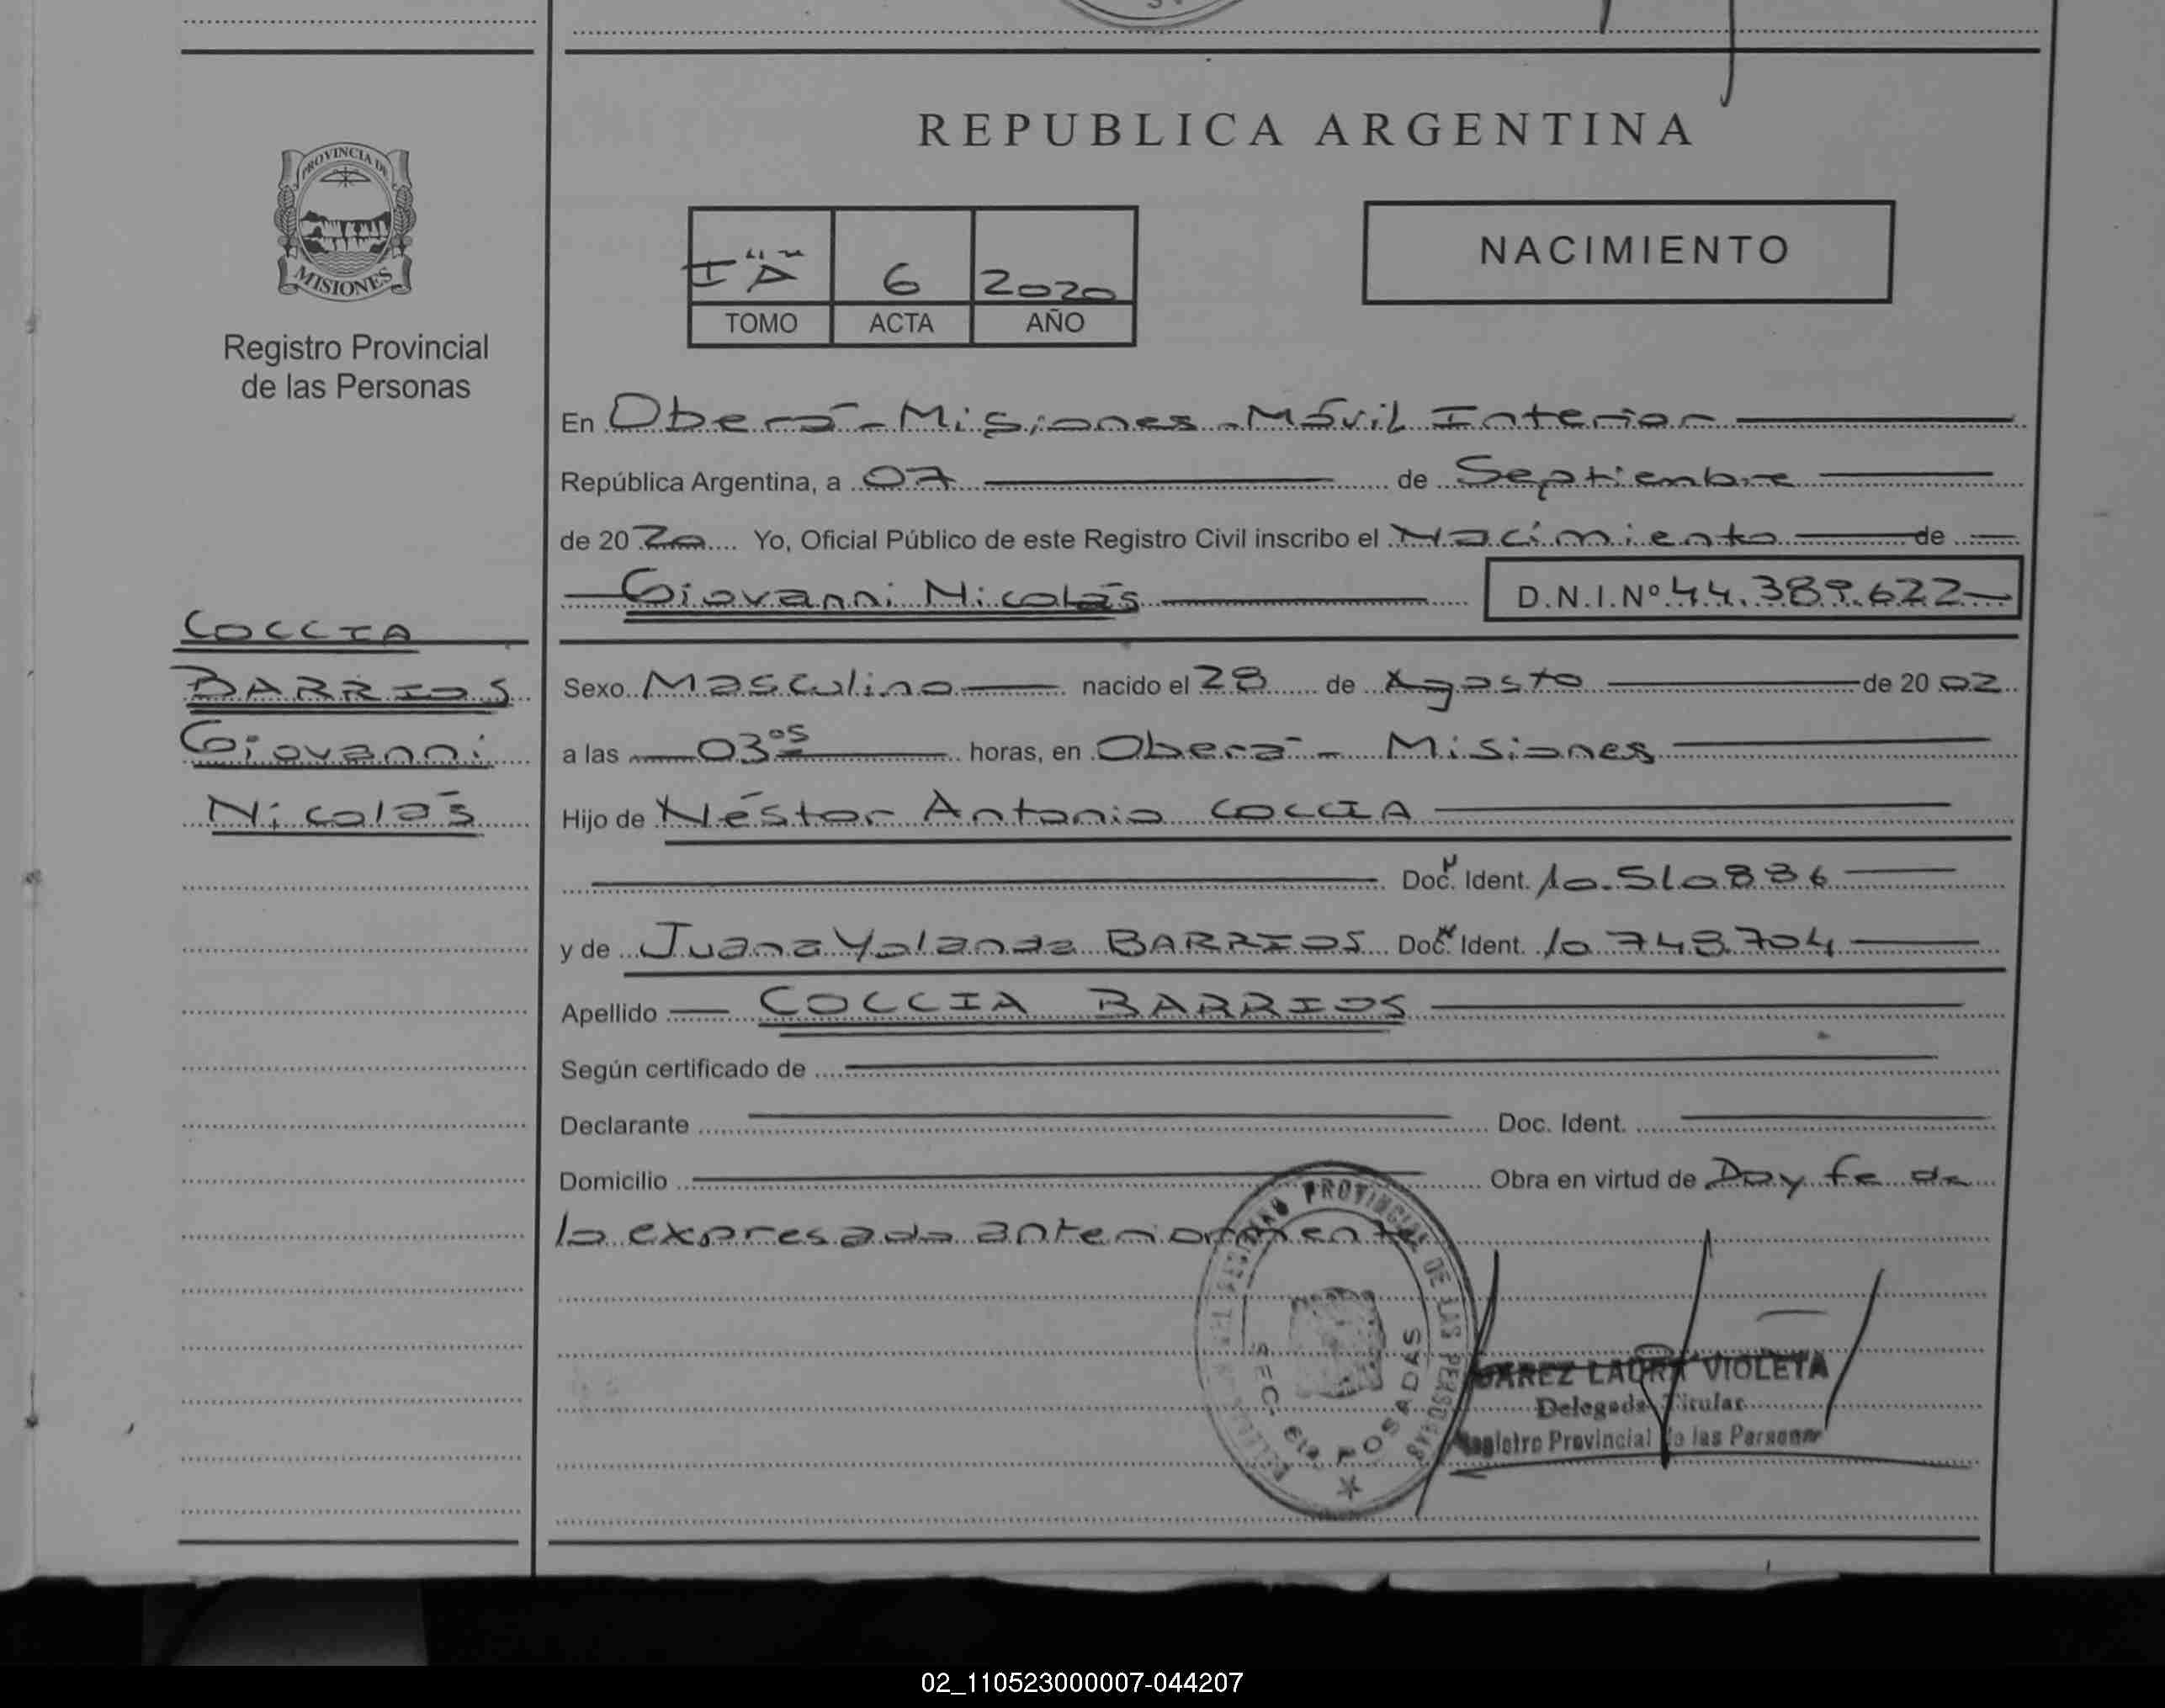 REPUBLICA ARGENTINA
PROVINCIA DE
MISIONES
Registro Provincial
de las Personas
I "A" 6 2020
TOMO ACTA AÑO
NACIMIENTO
En Oberá - Misiones - Móvil Interior
República Argentina, a 07 de Septiembre
de 20 20 Yo, Oficial Público de este Registro Civil inscribo el Nacimiento de
Giovanni Nicolás D.N.I.Nº 44.389.622
COCCIA
BARRIOS
Giovanni
Nicolás
Sexo Masculino nacido el 28 de Agosto de 20 02
a las 03 05 horas, en Oberá - Misiones
Hijo de Néstor Antonio COCCIA
Doc. Ident. 10.510836
y de Juana Yolanda BARRIOS Doc. Ident. 10 748.704
Apellido COCCIA BARRIOS
Según certificado de
Declarante Doc. Ident.
Domicilio Obra en virtud de Doy fe de
lo expresado anteriormente
PROVINCIAL DE LAS PERSONAS
POSADAS
LAURA VIOLETA
Delegada Titular
Registro Provincial de las Personas
02_110523000007-044207